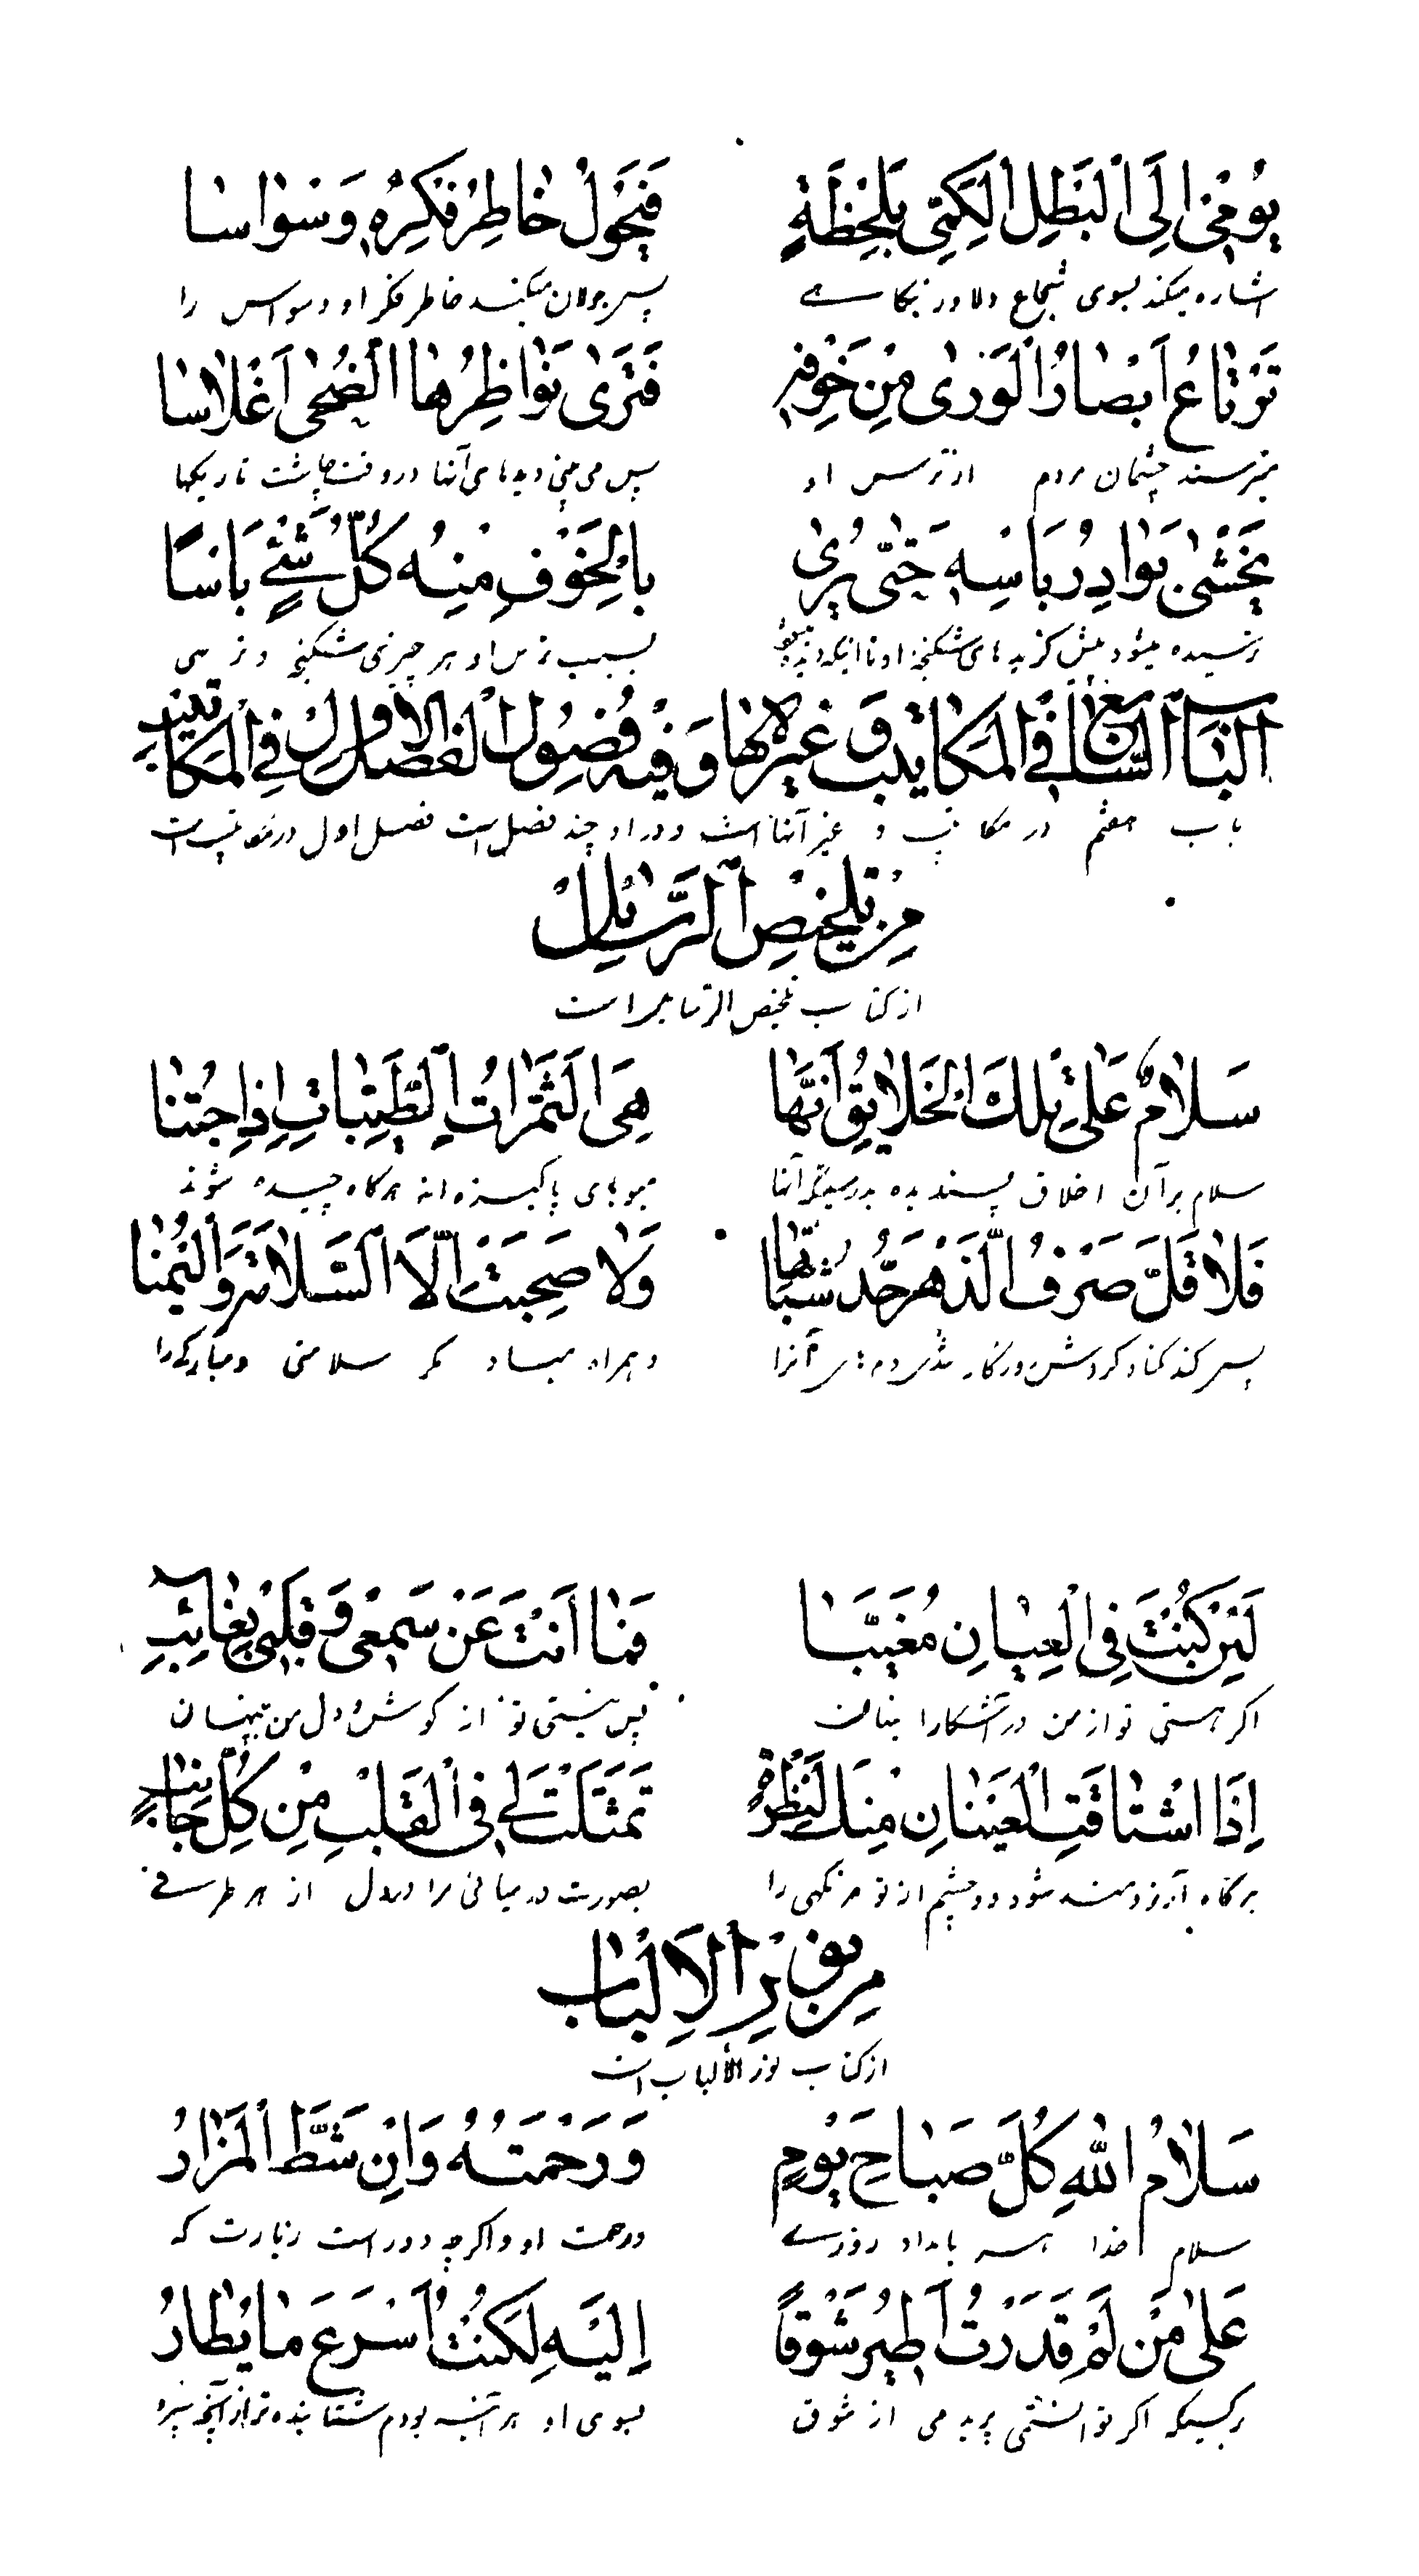 يُومِىٰ اِلَى الْبَطَلِ الْكَمِىِّ بِلَحْظَةٍ فَيَجُولُ خٰاطِرُ فِكْرِهٖ وَسْوٰاسا
اشاره میکند بسوی شجاع دلاور نگاهے پس جولان میکند خاطر فکر او وسواس را
تَرْتٰاعُ اَبْصٰارُ الْوَرٰى مِنْ خَوْفِهٖ فَتَرٰى نَوٰاظِرُهٰا الضُّحٰى اَغْلاسا
میترسند چشمان مردم از ترس او پس می بیند دیدهای آنها در وقت چاشت تاریکیها
يَخْشٰى بَوٰادِرُ بَاسِهٖ حَتّٰى يُرٰى بِالْخَوْفِ مِنْهُ كُلُّ شَىْءٍ بَاسًا
ترسیده میشود سبب ترس او هر چیزی شکنجه و ترسی
اَلْبٰابُ السّٰابِعُ فِى الْمَكٰاتِيبِ وَ غَيْرِهٰا وَ فِيهِ فُضُولُ الْفَصْلُ الْاَوَّلُ فِى الْمَكٰاتِيبِ
باب هفتم در مکاتیب و غیر آنها است و در او چند فصل است فصل اول در مکاتیب است
مِنْ تَلْخِيصِ الرَّسٰائِلِ
از کتاب تلخیص الرسایل است
سَلاٰمٌ عَلٰى تِلْكَ الْخَلاٰيِقِ اَنَّهٰا هِىَ الثَّمَرٰاتُ الطَّيِّبٰاتِ اِذٰا جُتَنٰا
سلام بر آن اخلاق پسندیده بدرستیکه آنها میوهای پاکیزه اند هرگاه چیده شوند
فَلاٰ قَلَّ صَرْفُ الدَّهْرِ حَدَّ شَبٰاتِهٰا وَلاٰ صَحِبَتْ اِلَّا السَّلاٰمَةَ وَ الْيُمْنٰا
پس کند کناد گردش روزگار آنرا و همراه مباد مگر سلامتی و مبارکی را
لَئِنْ كُنْتَ فِى الْعِيٰانِ مُغَيَّبًا فَمٰا اَنْتَ عَنْ سَمْعِى وَ قَلْبِى بِغٰائِبِ
اگر هستی تو از من در آشکارا پنهان پس نیستی تو از گوش و دل من پنهان
اِذَا اشْتٰاقَتِ الْعَيْنٰانِ مِنْكَ لِنَظْرَةٍ تَمَثَّلْتَ لِے فِى الْقَلْبِ مِنْ كُلِّ جٰانِبٍ
هرگاه آرزومند شود دو چشم از تو مر نگهی را بصورت در میائی مرا در دل از هر طرفے
مِنْ نُورِ الْاَلْبٰابِ
از کتاب نور الالباب است
سَلاٰمُ اللّٰهِ كُلَّ صَبٰاحِ يَوْمٍ وَ رَحْمَتُهُ وَ اِنْ شَطَّ الْمَزٰارُ
سلام خدا هر بامداد روزے و رحمت او و اگرچه دور است زیارت که
عَلٰى مَنْ لَمْ قَدَرْتُ اَطِيرُ شَوْقًا اِلَيْهِ لَكُنْتُ اَسْرَعَ مٰا يُطٰارُ
بر کسیکه اگر توانستمی پریدمی از شوق بسوی او هر آینه بودم شتابنده تر از آنچه